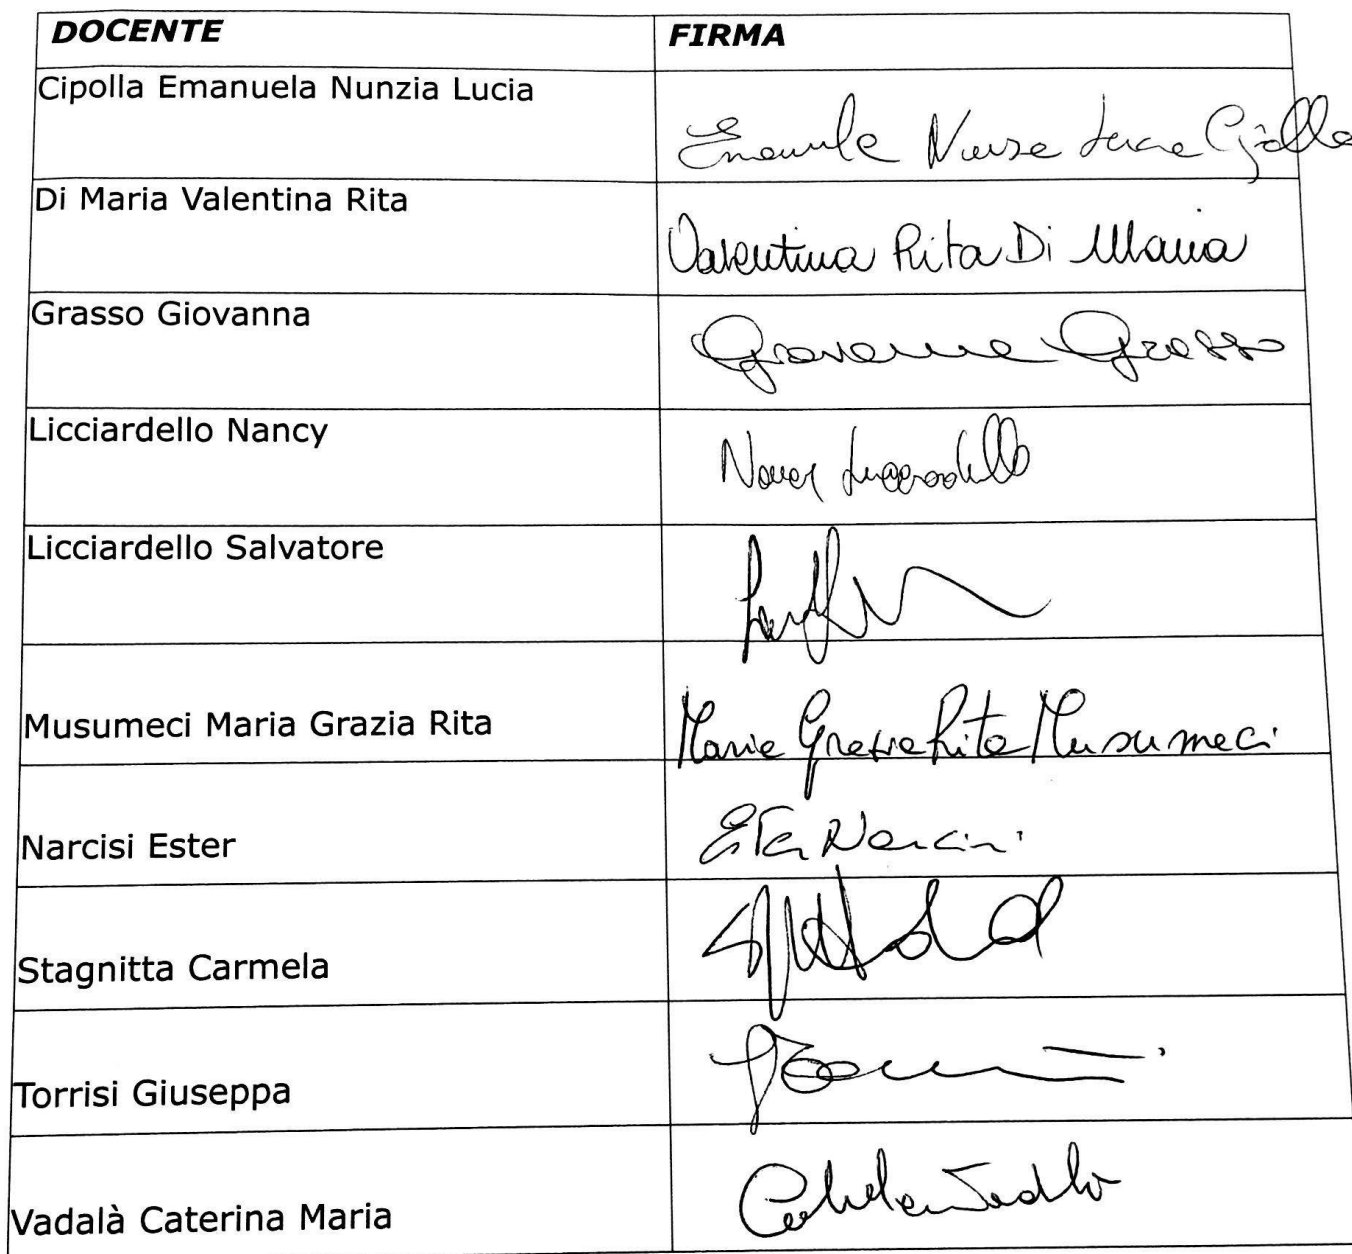 DOCENTE FIRMA
Cipolla Emanuela Nunzia Lucia
Emanuela Nunzia Lucia Cipolla
Di Maria Valentina Rita
Valentina Rita Di Maria
Grasso Giovanna
Giovanna Grasso
Licciardello Nancy
Nancy Licciardello
Licciardello Salvatore
Musumeci Maria Grazia Rita
Maria Grazia Rita Musumeci
Narcisi Ester
Ester Narcisi
Stagnitta Carmela
Torrisi Giuseppa
Vadalà Caterina Maria